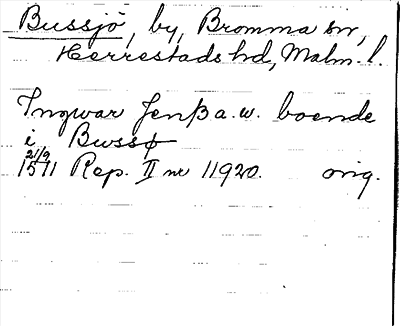 Bussjö, by, Bromma sn,
Herrestads hd, Malm. l.
Ingwar Jenß a. w. boende
i Bwssø
21/9
1511 Rep. II nr 11920. orig.